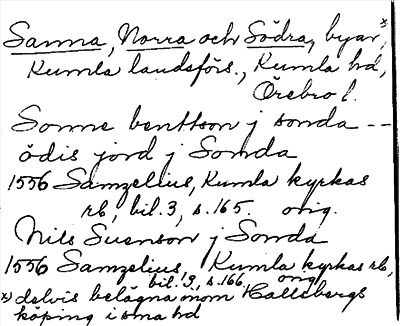 Sanna, Norra och Södra, byar,x)
Kumla landsförs., Kumla hd,
Örebro l.
Sonne benttson j sonda --
ödis jord j Sonda
1556 Samzelius, Kumla kyrkas
rb, bil. 3, s. 165. orig.
Nils Suenson j Sonda
1556 Samzelius, Kumla kyrkas rb,
bil. 19, s. 166, orig.
x) delvis belägna inom Hallsbergs
köping i sma hd